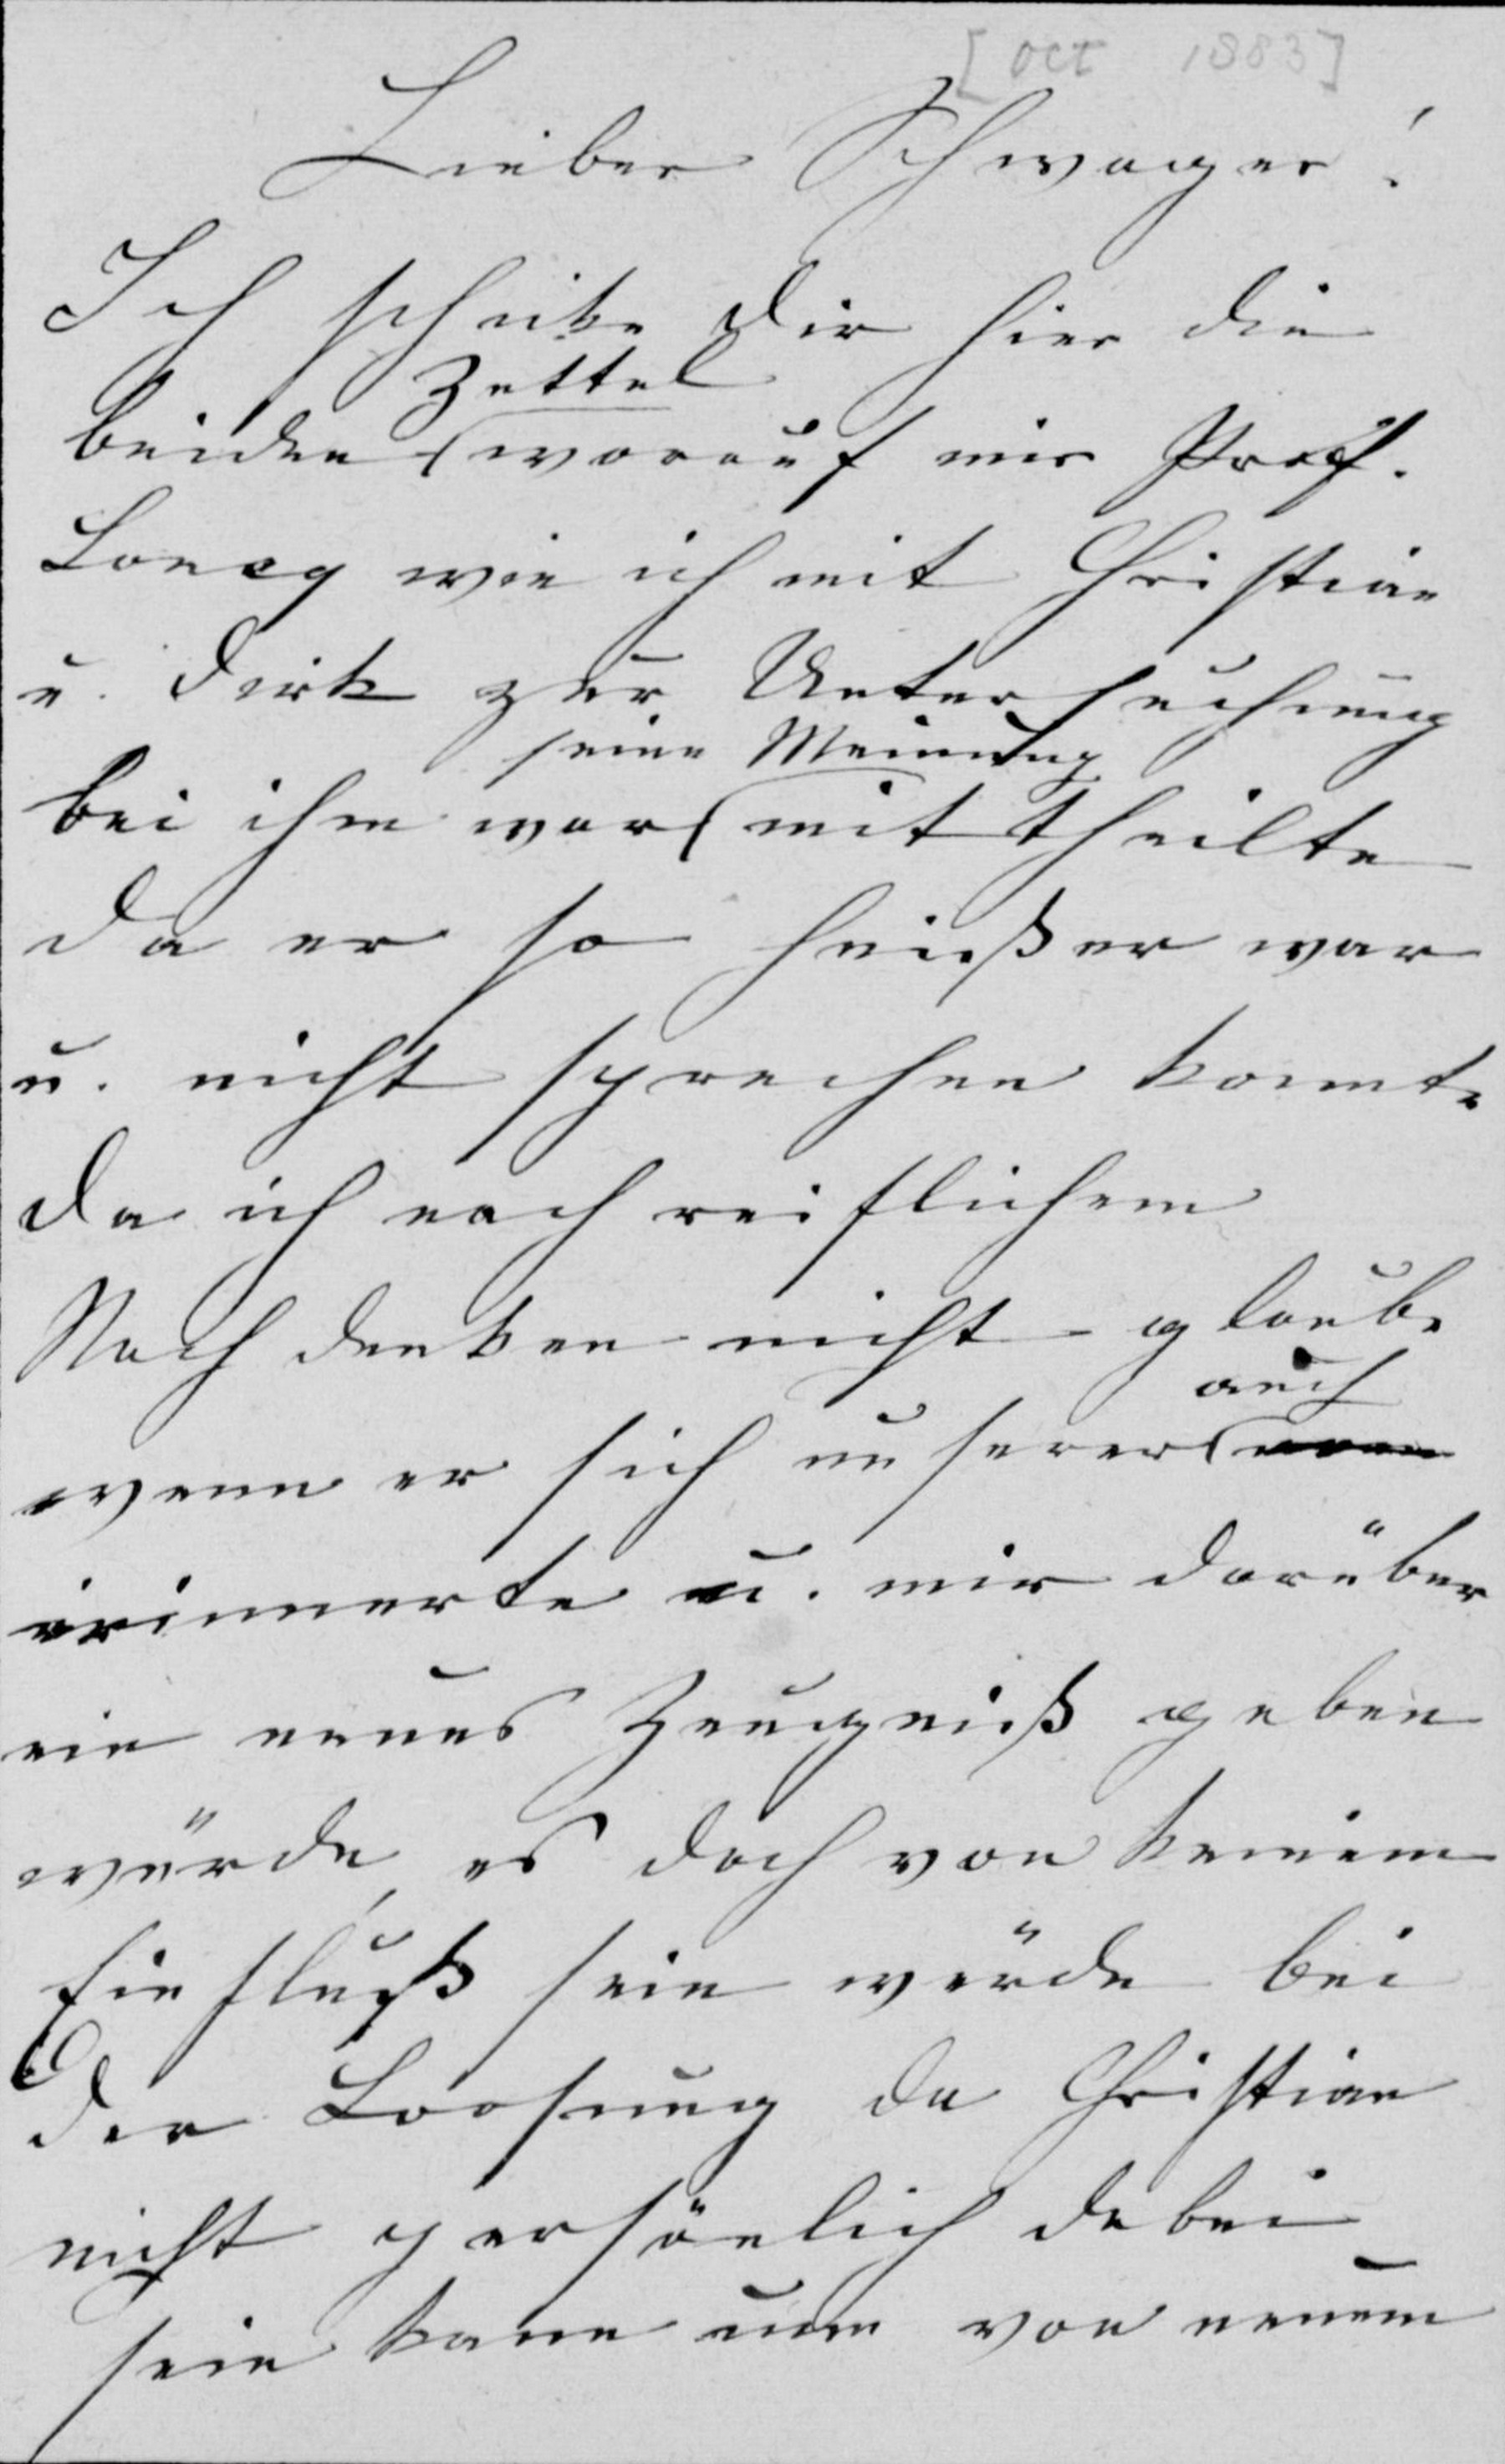 [Oct 1883]
Lieber Schwager!
Ich schicke Dir hier die
Zettel
beiden worauf mir Prof.
Loncq wie ich mit Christian
u. Dirk zur Untersuchung
seine Meinung
bei ihm war mittheilte
da er so heißer war
u. nicht sprechen konnte
Da ich nach reiflichem
Nachdenken nicht glaube
auch
wenn er sich unserer
erinnerte u. mir darüber
ein neues Zeugniß geben
würde, es doch von keinem
Einfluß sein würde bei
der Loosung da Christian
nicht persönlich dabei
sein kann um von neuem